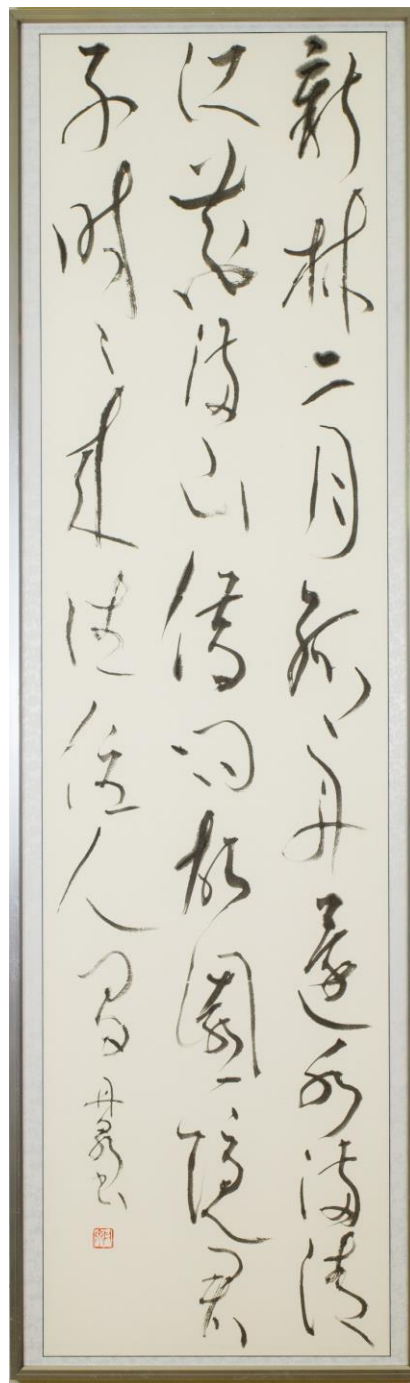 新林二月孤舟還水滿清
江花滿山借問故園隱君
子時々來往住人間 丹書